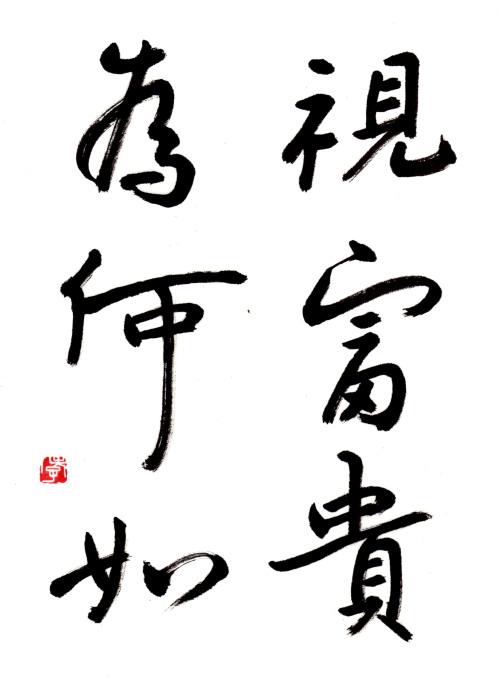 視富貴
為何如